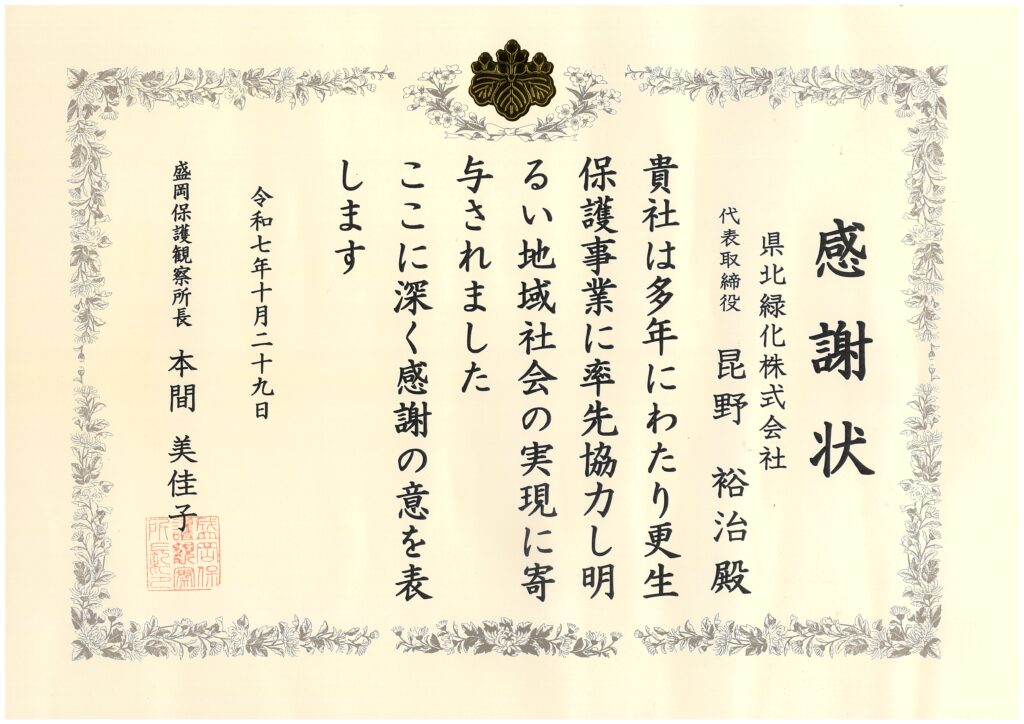 感謝状
県北緑化株式会社
代表取締役 昆野 裕治 殿
貴社は多年にわたり更生
保護事業に率先協力し明
るい地域社会の実現に寄
与されました
ここに深く感謝の意を表
します
令和七年十月二十九日
盛岡保護観察所長 本間 美佳子
盛岡保
護観察
所長之印